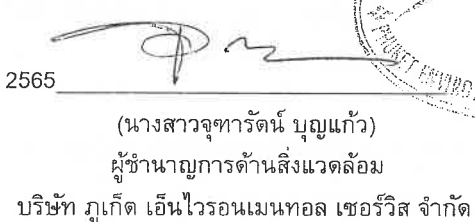 PHUKET ENVIRO
2565
(นางสาวจุฑารัตน์ บุญแก้ว)
ผู้ชำนาญการด้านสิ่งแวดล้อม
บริษัท ภูเก็ต เอ็นไวรอนเมนทอล เซอร์วิส จำกัด